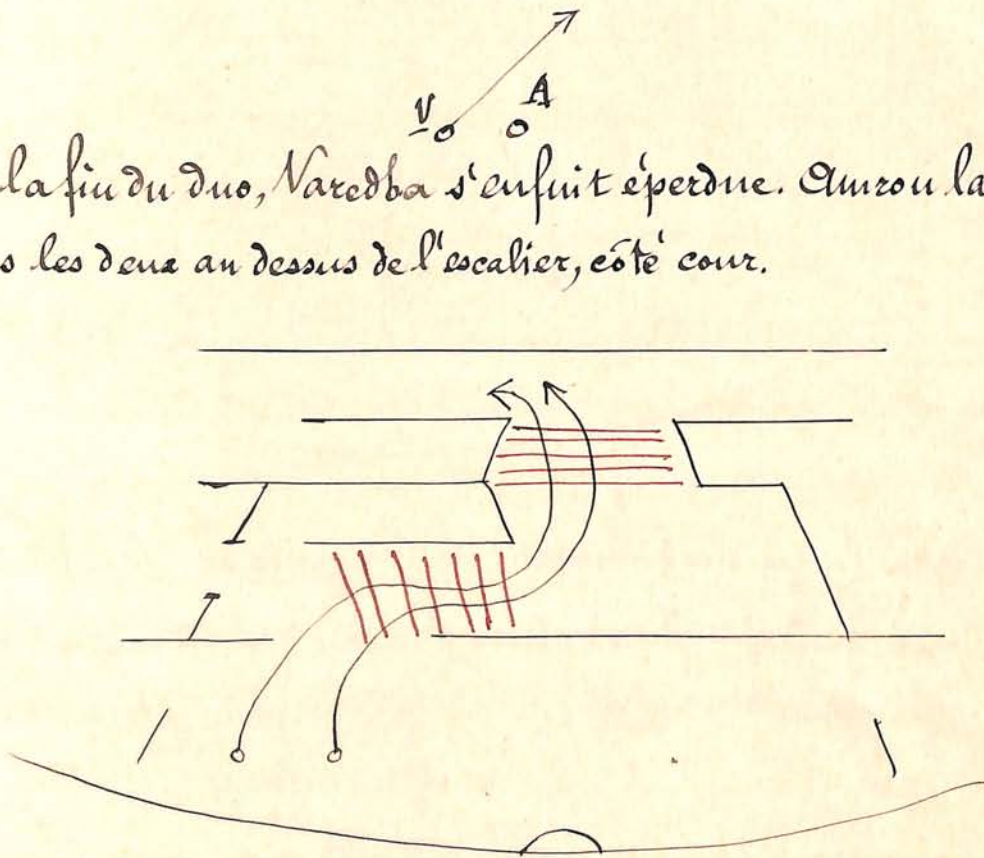 V A
la fin du duo, Varedha s'enfuit éperdue. Amrou la
s les deux au dessus de l'escalier, côté cour.